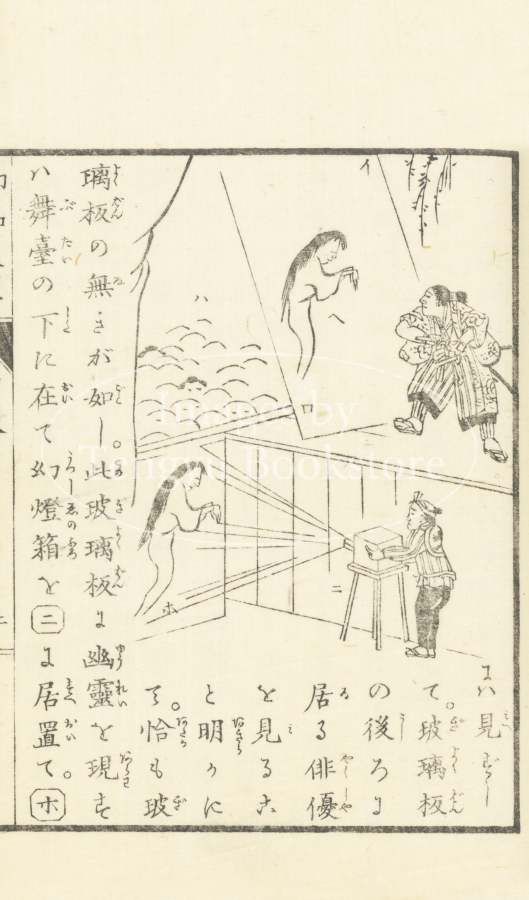 イ
ロ
ハ
ニ
ホ
ヘ
ハ見えずし
て。玻璃板
の後ろに
居る俳優
を見るこ
と明かに
て。恰も玻
璃板の無きが如し。此玻璃板に幽靈を現す
ハ舞臺の下に在て幻燈箱を㊁に居置て。ホ
Images by
Tamagawa Bookstore